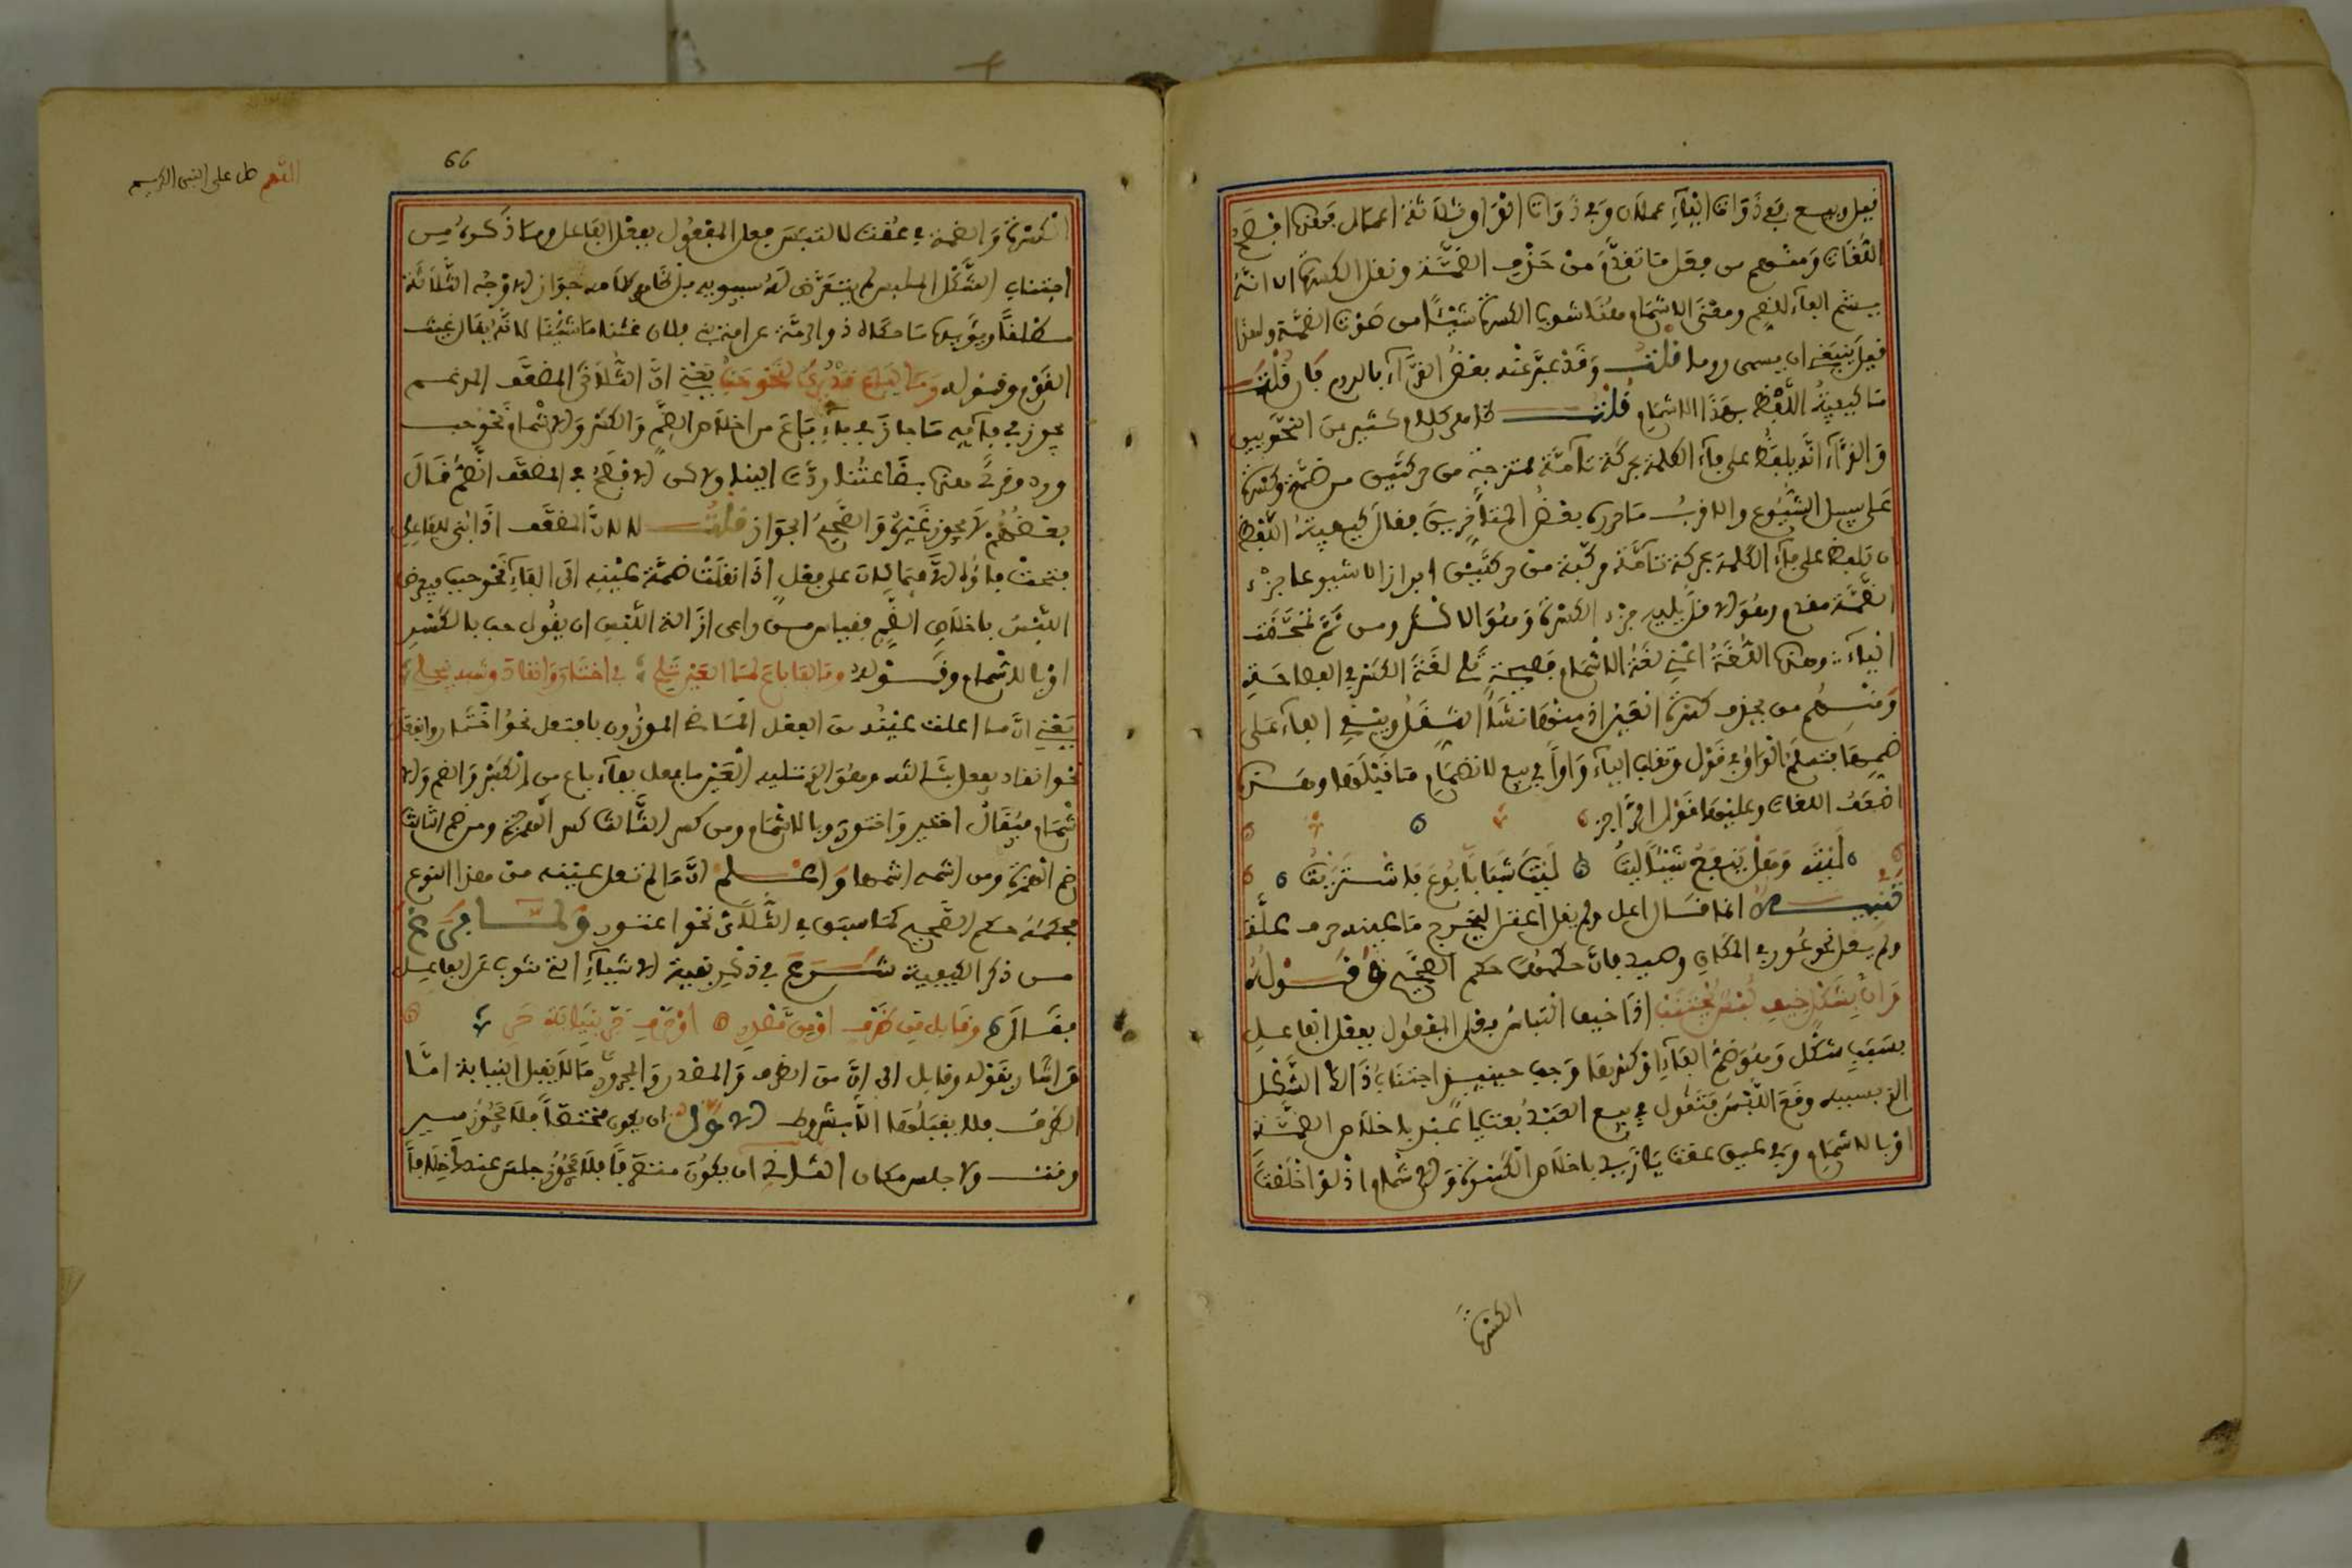 فيل وبيع ففي ذوات الياء عملان وفي ذوات الواو ثلاثة اعمال فهذه افصح
اللغات ومنهم من فعل ما تقدم من حذف الضمة ونقل الكسرة الا انه
يشم الفاء للضم ومعنى الاشمام هنا شوب الكسرة شيئا من صوت الضمة ولهذا
قيل ينبغي ان يسمى روما قلت وقد عبر عنه بعض القراء بالروم فان قلت
ما كيفية اللفظ بهذا الاشمام قلت ظاهر كلام كثير من النحويين
والقراء انه يلفظ على فاء الكلمة بحركة تامة ممتزجة من حركتين من ضمة وكسرة
على سبيل الشيوع والاقرب ما حرره بعض المتأخرين فقال كيفية اللفظ
ان يلفظ على فاء الكلمة بحركة تامة مركبة من حركتين افرازا لا شيوعا جزء
الضمة مقدم وهو الاقل يليه جزء الكسرة وهو الاكثر ومن ثم تمحضت
الياء وهذه اللغة اعني لغة الاشمام فصيحة تلي لغة الكسر في الفصاحة
ومنهم من يحذف كسرة العين اذ منها نشأ الثقل ويبقي الفاء على
ضمها فتسلم الواو في قول وتقلب الياء واوا في بيع لانضمام ما قبلها وهذه
اضعف اللغات وعليها قول الراجز
ليت وهل ينفع شيئا ليت ليت شبابا بوع فاشتريت
تنبيه انما قال اعل ولم يقل اعتل ليخرج ما عينه حرف علة
ولم يعل نحو عور في المكان وصيد فان حكمهما حكم الصحيح قوله
وان بشكل خيف لبس يجتنب اذا خيف التباس فعل المفعول بفعل الفاعل
بسبب شكل وهو ضم الفاء او كسرها وجب حينئذ اجتناب ذلك الشكل
الذي بسببه وقع اللبس فتقول في بيع العبد بعت يا عبد باخلاص الضمة
او بالاشمام وفي عيق عقت يا زيد باخلاص الكسرة والاشمام اذ لو اخلصت
الكسرة
66
اللهم صل على النبي الكريم
الكسرة والضمة في عقت لالتبس فعل المفعول بفعل الفاعل وما ذكره من
اجتناب الشكل الملبس لم يتعرض له سيبويه بل ظاهر كلامه جواز الاوجه الثلاثة
مطلقا ويؤيده ما حكاه ذو الرمة عن امة بني فلان غثنا ما شئنا لانه يقال غيث
القوم وقوله وما لباع قد يرى لنحو حب يعني ان الثلاثي المضعف المدغم
يجوز في فائه ما جاز في فاء باع من اخلاص الضم والكسر والاشمام نحو حب
ورد وقرئ هذه بضاعتنا ردت الينا ولاكن الافصح في المضعف الضم قال
بعضهم لا يجوز غيره والصحيح الجواز قلت لان المضعف اذا بني للفاعل
فتحت فاؤه الا فيما كان على فعل اذا نقلت ضمة عينه الى الفاء نحو حب فيعرض
اللبس باخلاص الضم فقياس من راعى ازالة اللبس ان يقول حب بالكسر
او بالاشمام وقوله وما لفا باع لما العين تلي في اختار وانقاد وشبه ينجلي
يعني ان ما اعلت عينه من الفعل الماضي الموزون بافتعل نحو اختار وانفعل
نحو انقاد يفعل بثالثه وهو الذي تليه العين ما يفعل بفاء باع من الكسر والضم والا
شمام فيقال اختير واختور وبالاشمام ومن كسر الثالث كسر الهمزة ومن ضم الثالث
ضم الهمزة ومن اشمه اشمها واعلم ان ما لم تعل عينه من هذا النوع
فحكمه حكم الصحيح كما سبق في الثلاثي نحو اعتور ولما فرغ
من ذكر الكيفية شرع في ذكر بقية الاشياء التي تنوب عن الفاعل
فقال وقابل من ظرف او من مصدر او حرف جر بنيابة حري
فاشار بقوله وقابل الى ان من الظرف والمصدر والمجرور ما لا يقبل النيابة اما
الظرف فلا يقبلها الا بشروط الاول ان يكون مختصا فلا يجوز سير
وقت ولا جلس مكان الثاني ان يكون متصرفا فلا يجوز جلس عندك خلافا